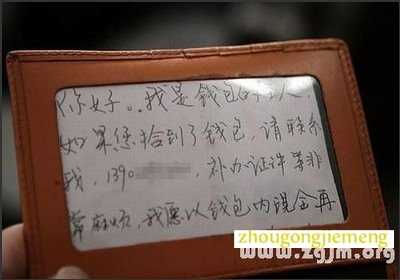 你好。我是钱包的主人，
如果您拾到了钱包，请联系
我，1390
补办证件等非
常麻烦，我愿以钱包内现金再
zhougongjiemeng
www.zgjm.org